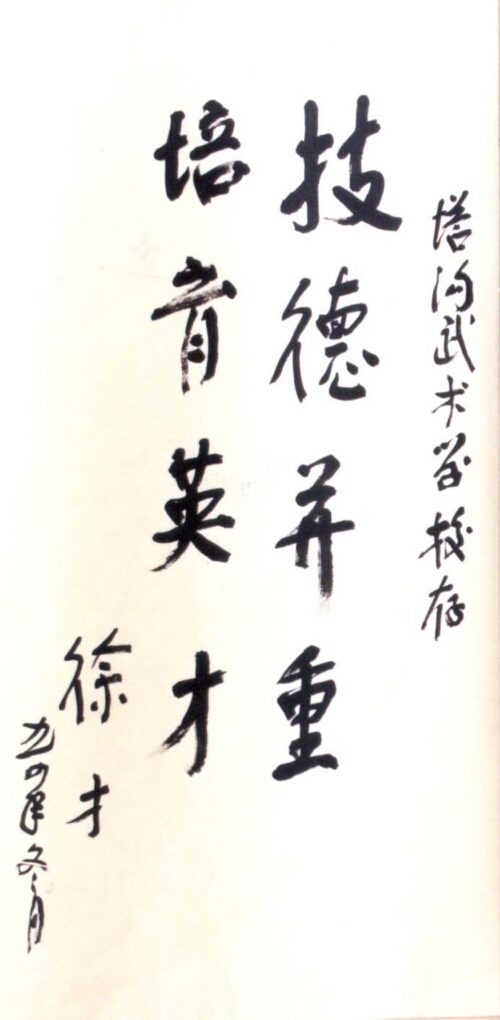 塔沟武术学校存
技德并重
培育英才
徐才
九四年冬月